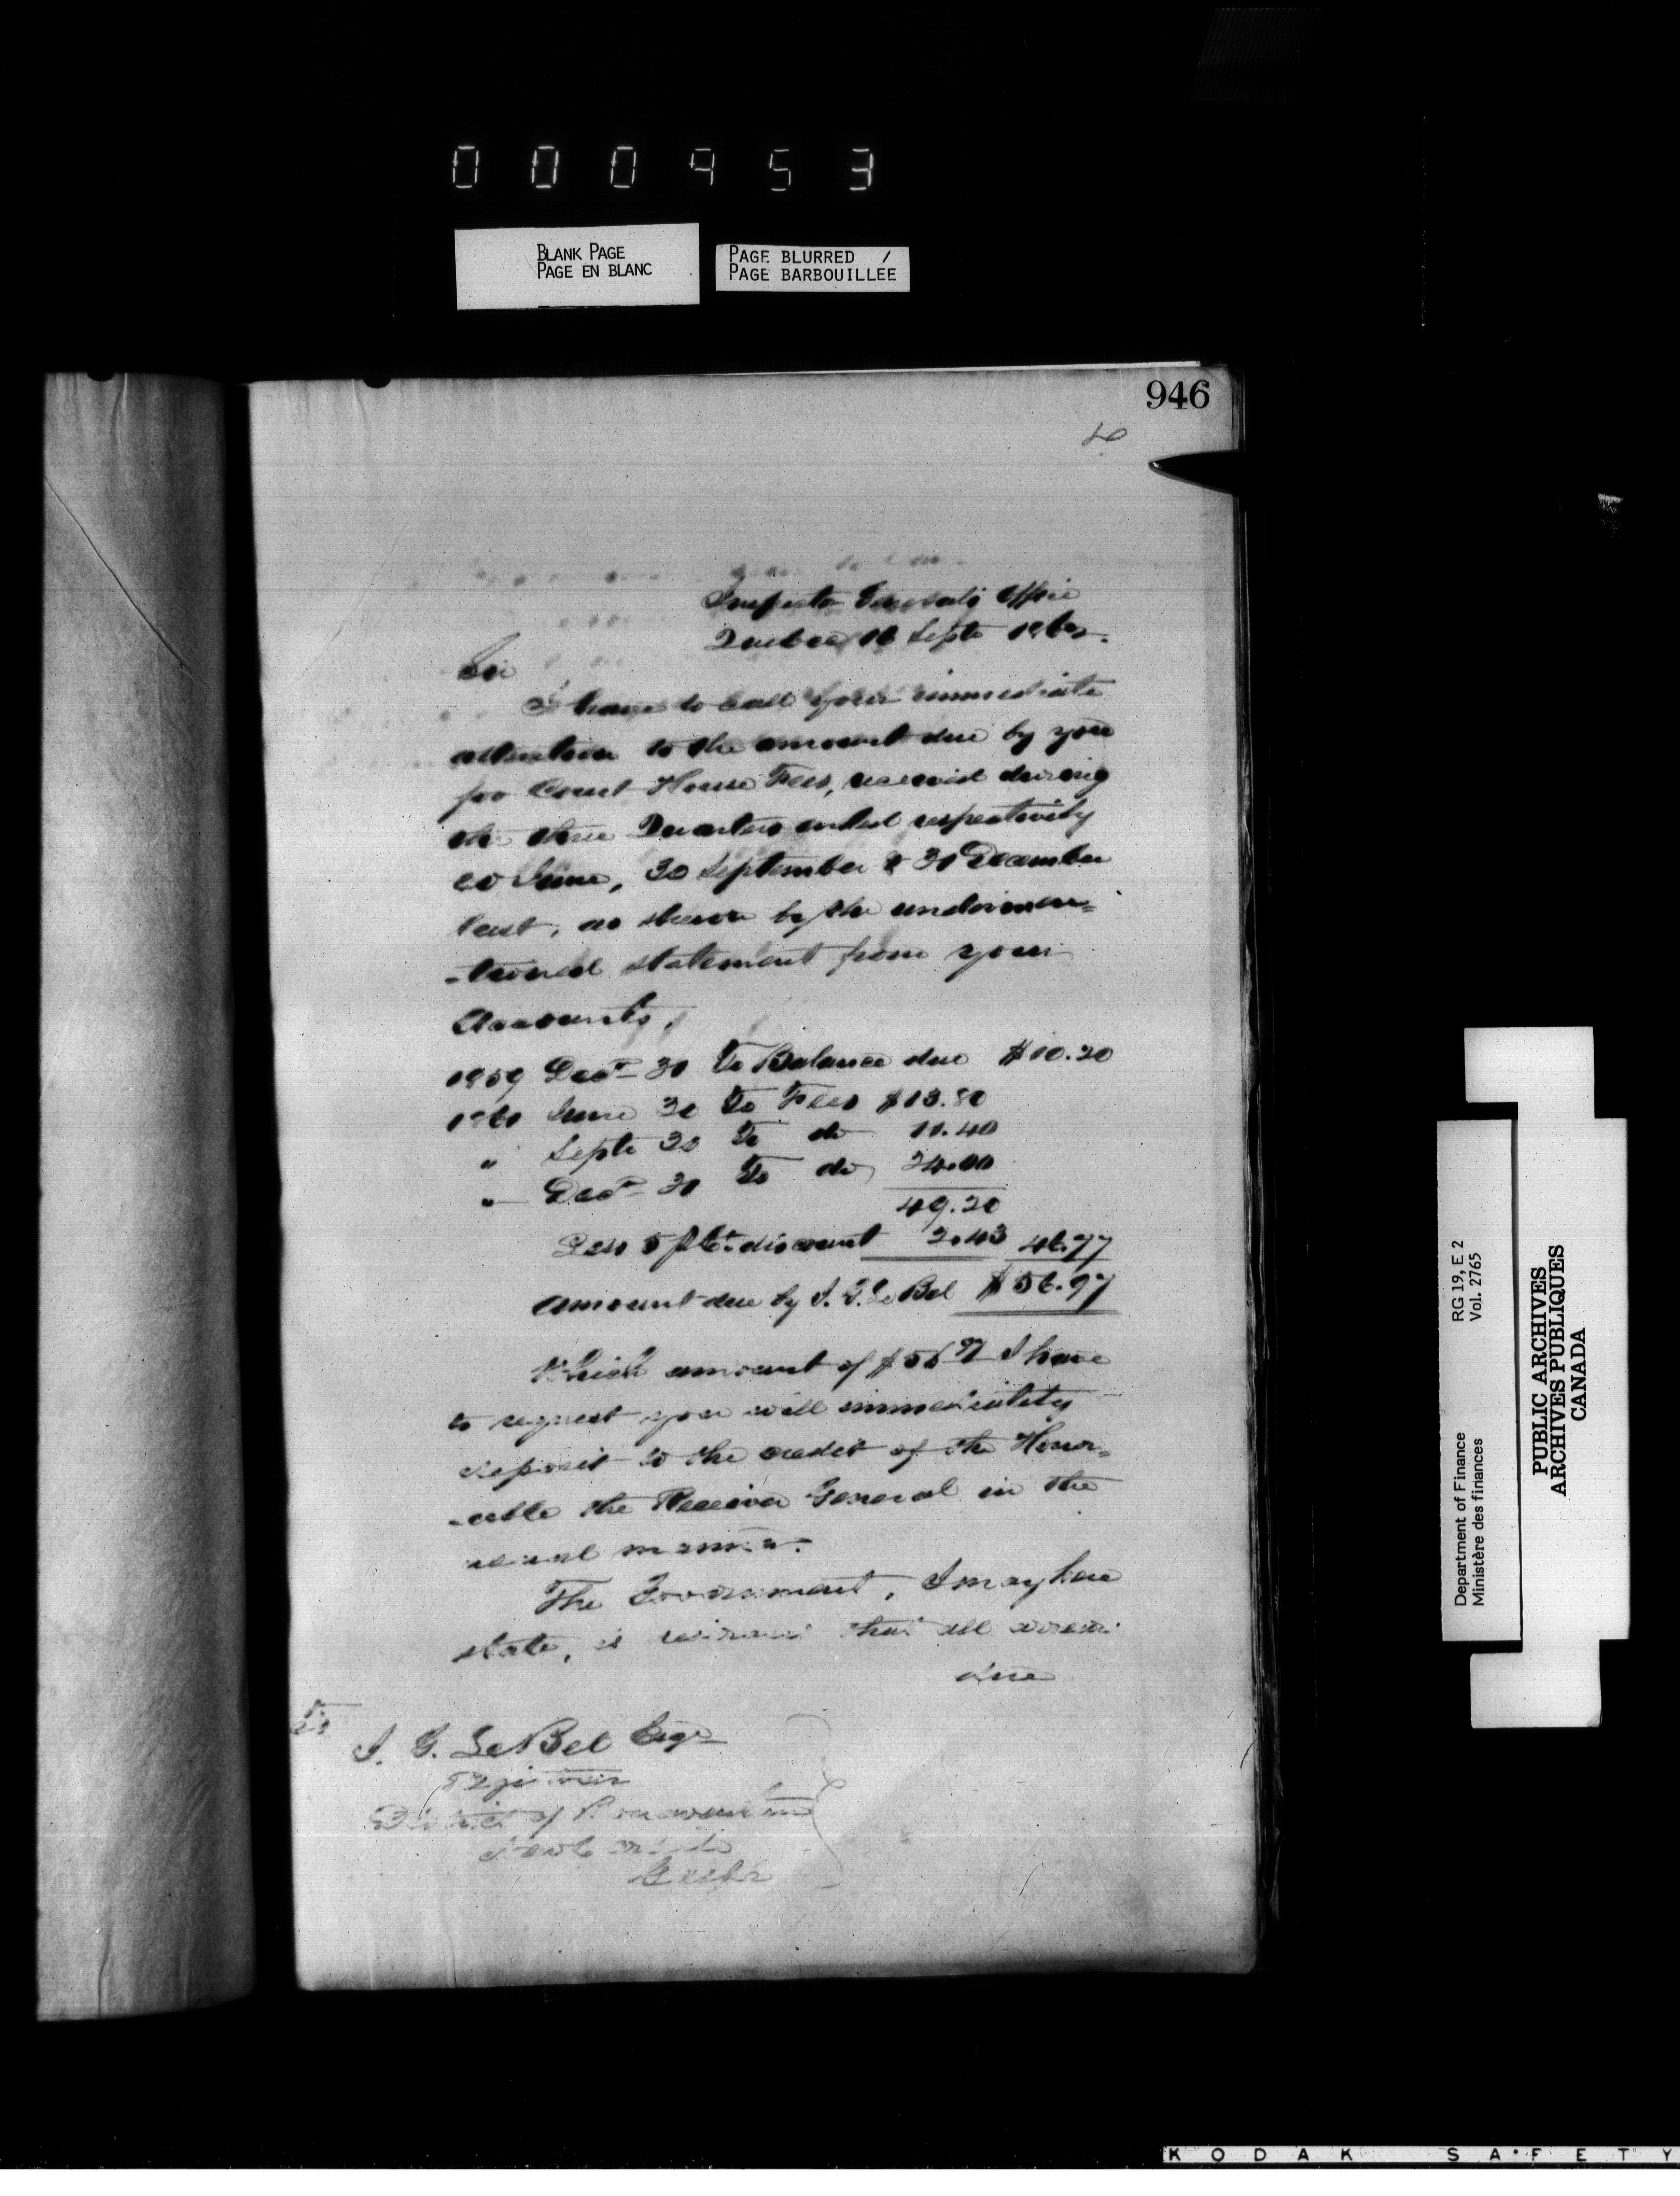 000953
BLANK PAGE
PAGE EN BLANC
PAGE BLURRED /
PAGE BARBOUILLEE
946
Inspector Generals Office
Quebec 16 Septr
Sir
I have to call your immediate
attention to the amount due by you
for Court House Fees, received during
the three Quarters ended respectively
30 June, 30 September & 31 December
last, as shewn by the undermen=
-tioned statement from your
Accounts,
1859 Decr 31 To Balance due $10.20
1860 June 30 To Fees $13.80
" Septr 30 To do 11.40
" Decr 31 To do 24.00
49.20
Less 5 p Ct. discount 2.43 46.77
Amount due by J. G. LeBel $56.97
Which amount of $56 97 I have
to request you will immediately
deposit to the credit of the Honor=
-able the Receiver General in the
usual manner.
The Government, I may here
state, is that all arrears
due
To
J. G. LeBel Esqr
District of Bonaventure
New Carlisle
RG 19, E 2
Vol. 2765
Department of Finance
Ministère des finances
PUBLIC ARCHIVES
ARCHIVES PUBLIQUES
CANADA
KODAK SAFETY